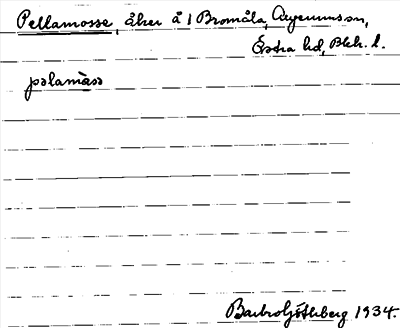 Pellamosse, åker å 1 Bromåla, Augerums sn,
Östra hd, Blek. l.
pəlamåsə
Barbro Göthberg 1934.